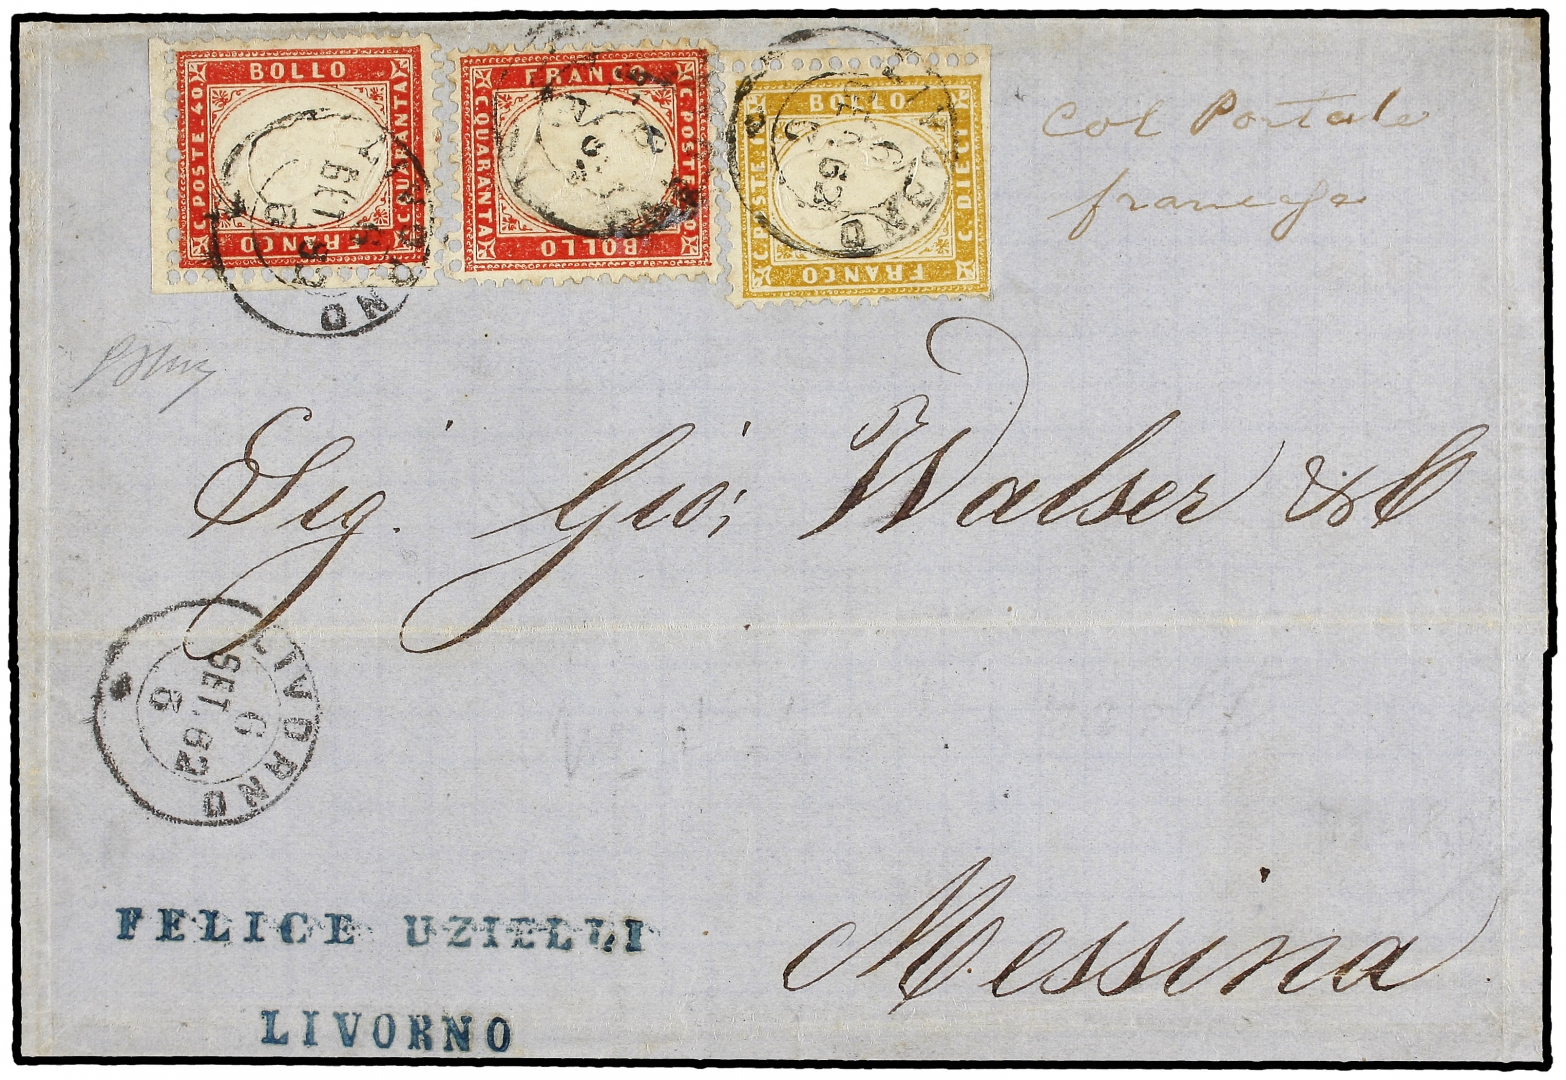 BOLLO
C. POSTE. 40
C. QUARANTA
FRANCO
FRANCO
C. QUARANTA
C. POSTE 40
BOLLO
BOLLO
C. DIECI
FRANCO
LIVORNO
6
SET. 62
LIVORNO
col Postale
francese
Sig. Gio: Walser & C
LIVORNO
6
SET. 62
6
Messina
FELICE UZIELLI
LIVORNO